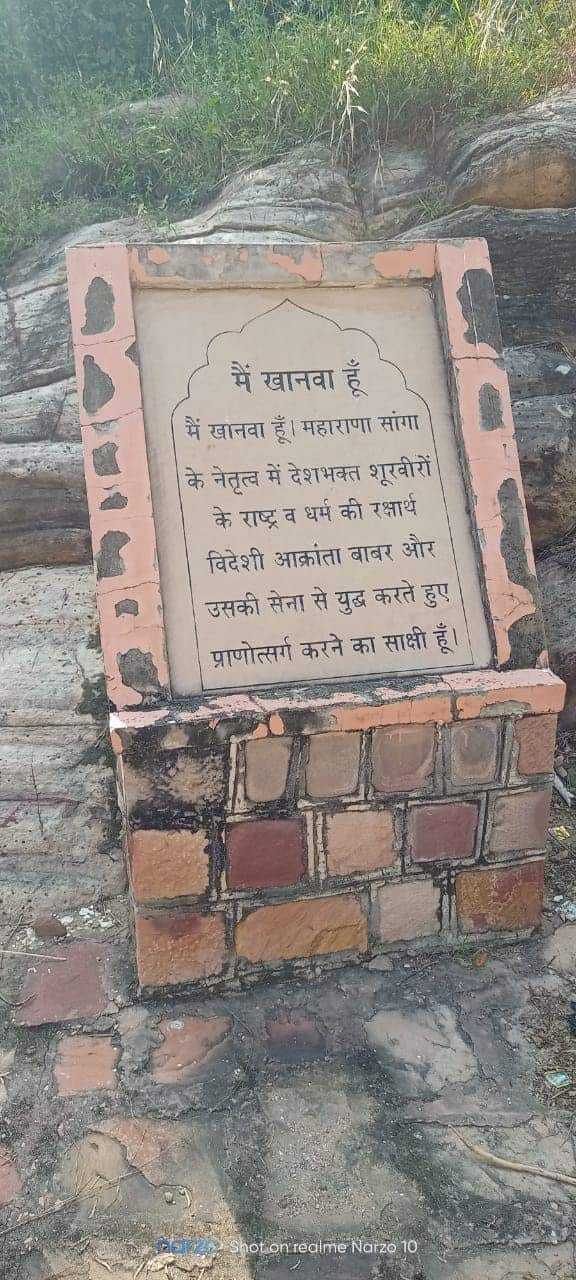 मैं खानवा हूँ
मैं खानवा हूँ। महाराणा सांगा
के नेतृत्व में देशभक्त शूरवीरों
के राष्ट्र व धर्म की रक्षार्थ
विदेशी आक्रांता बाबर और
उसकी सेना से युद्ध करते हुए
प्राणोत्सर्ग करने का साक्षी हूँ।
narzo Shot on realme Narzo 10